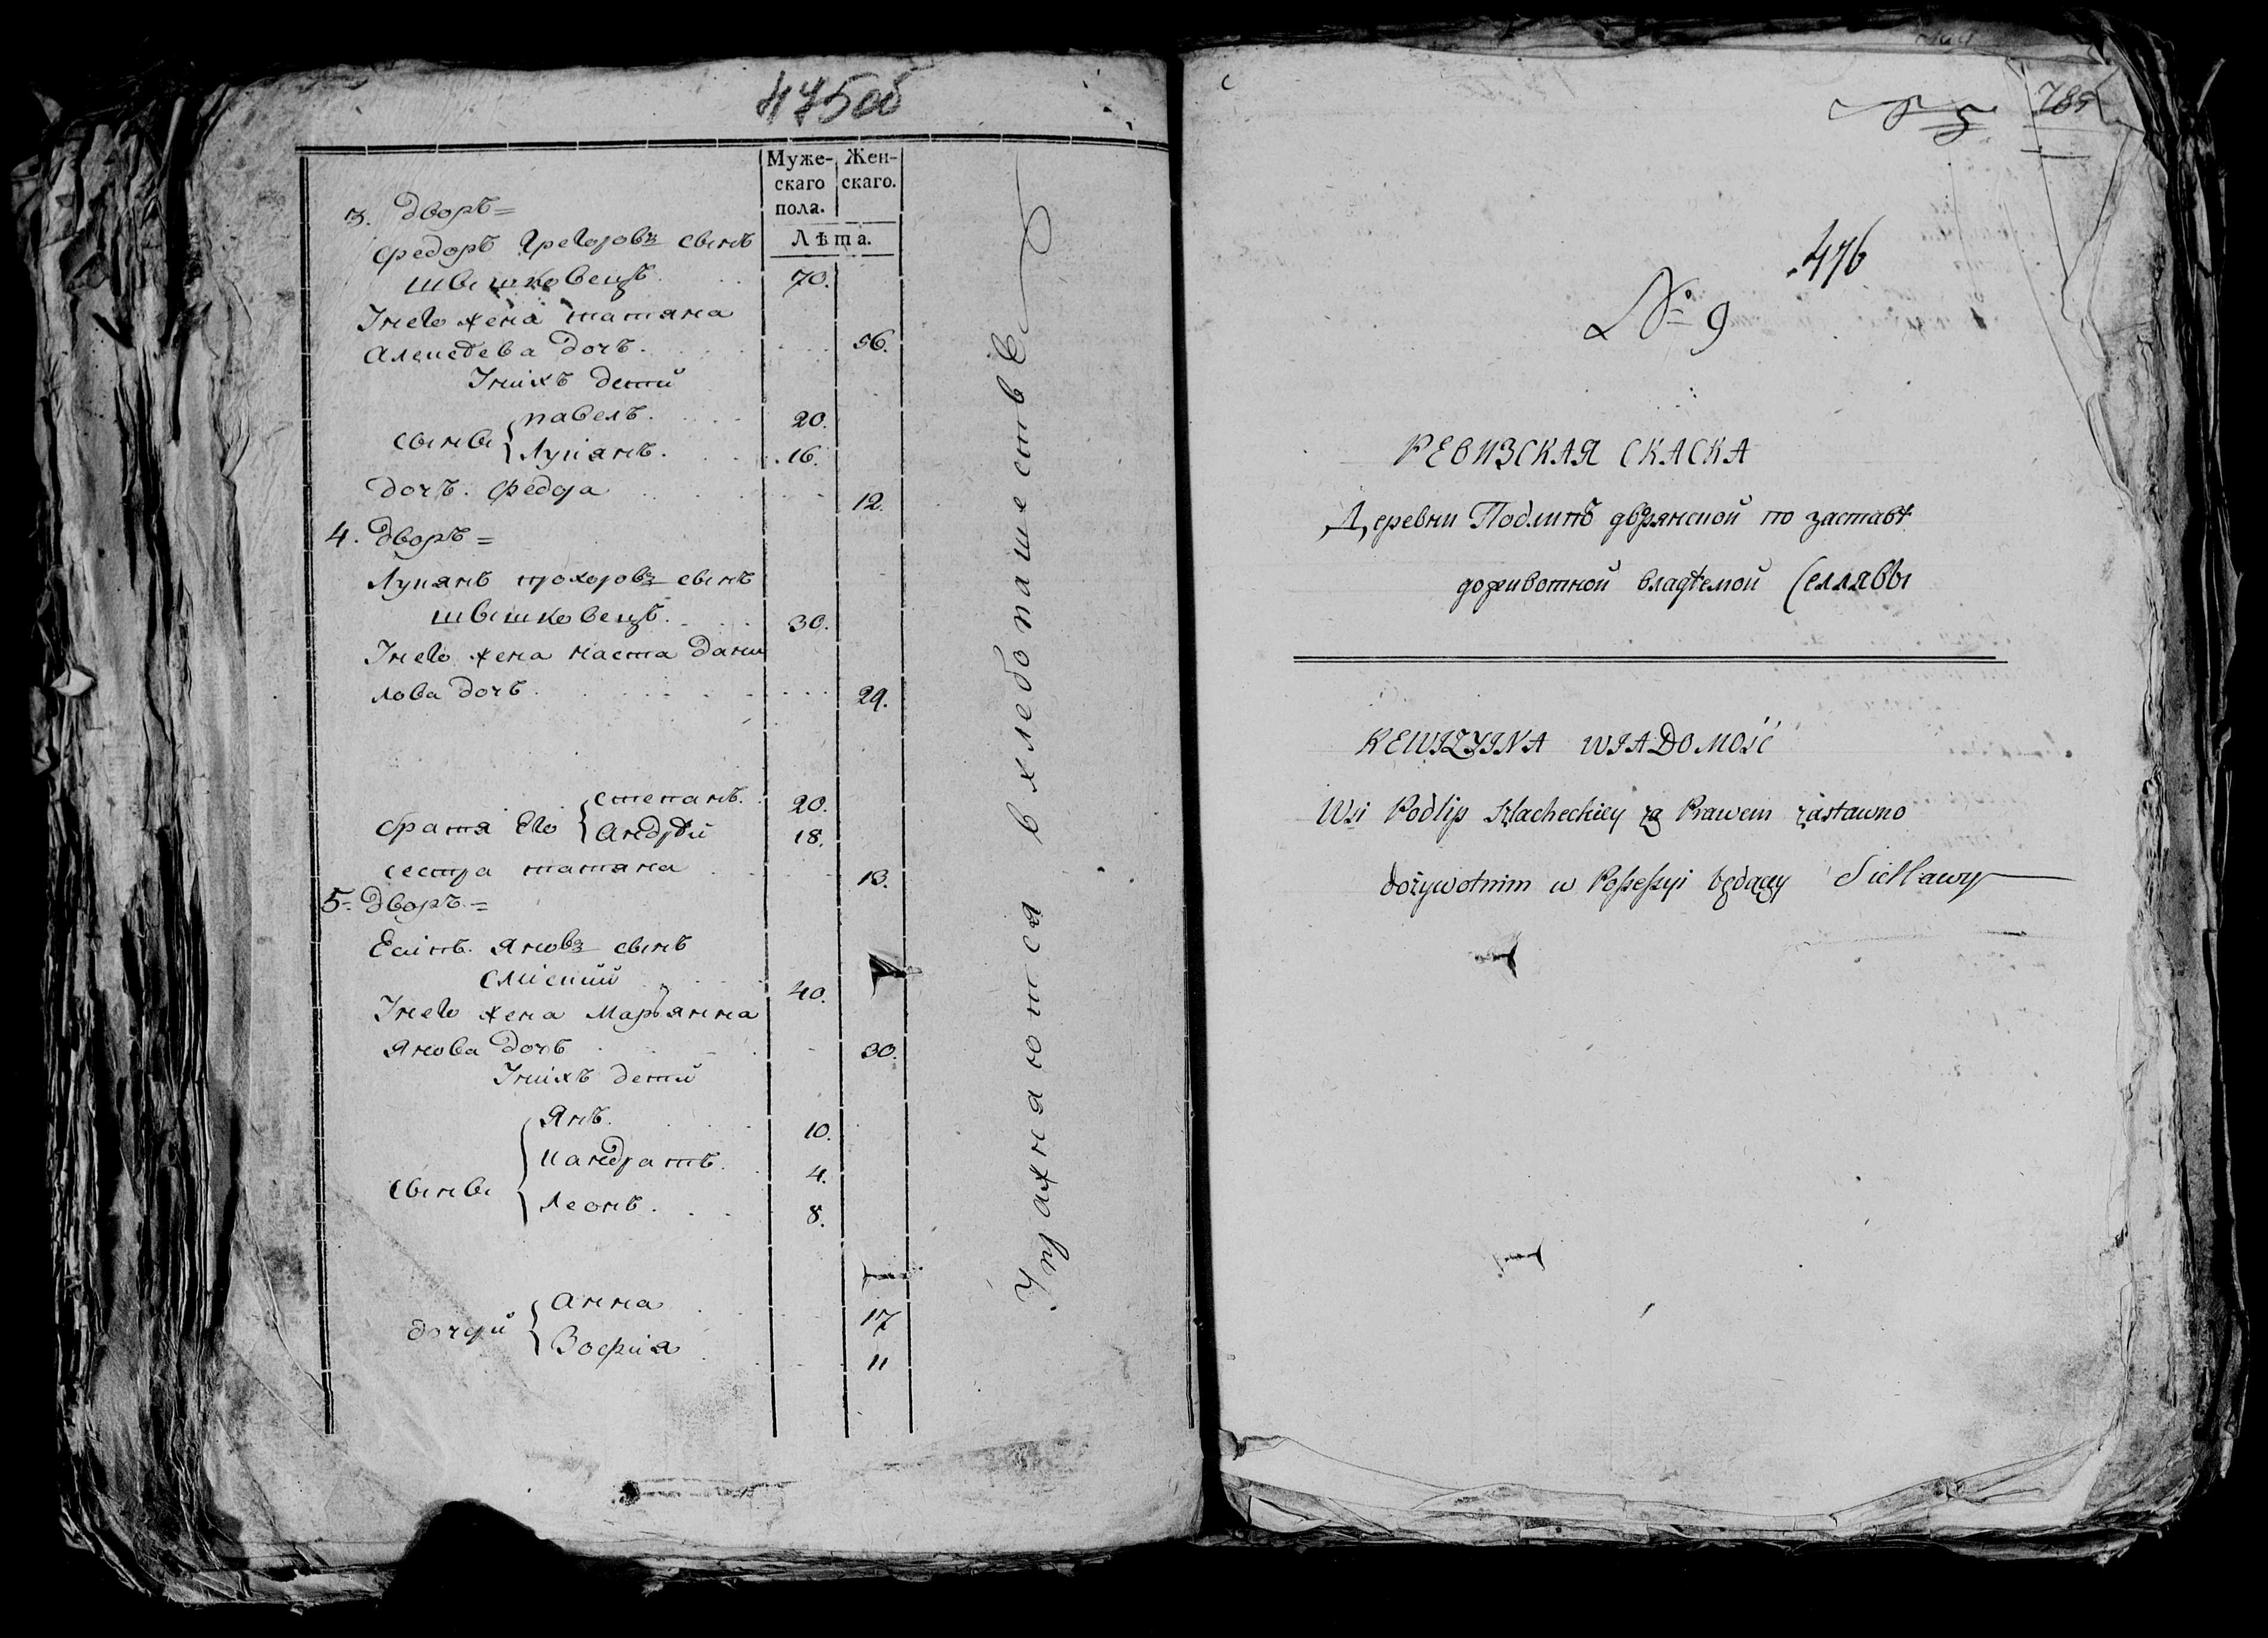 475об
Муже- Жен-
скаго скаго.
пола.
Лѣта.
3. Дворъ =
Федоръ Грегоровъ сынъ
Шышковецъ. 70.
У него жена Татяна
Алексеева дочъ. 56.
У нихъ детий
сыны { Павелъ. 20.
Лукянъ. 16.
дочъ. Федора 12.
4. Дворъ =
Лукянъ Прохоровъ сынъ
Шышковецъ. 30.
У него жена Наста Дани
лова дочъ. 29.
братя его { Степанъ. 20.
Андрѣй 18.
сестра Татяна 13.
5. Дворъ. =
Есипъ. Яновъ сынъ
40.
У него жена Марьянна
Янова дочъ 30.
У нихъ детий
сыны { Янъ. 10.
Кандратъ. 4.
Леонъ. 8.
дочери { Анна 17
Зофия 11
Упражняются в хлебопашестве
785
476
№ 9
РЕВИЗСКАЯ СКАСКА
Деревни Подлипъ дврянской по заставѣ
доживотной владѣемой Селлявы
REWIZYINA WIADOMOŚĆ
Wsi Podlip Szlacheckiey za Prawem zastawno
dożywotnim w Possessyi będącey Siellawy